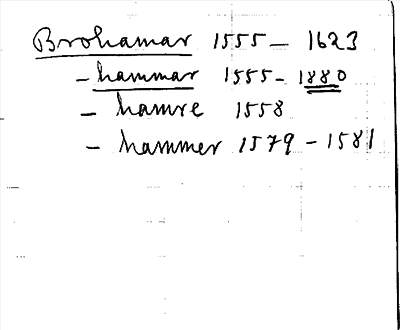 Brohamar 1555 – 1623
– hammar 1555 – 1880
– hamre 1558
– hammer 1579 – 1581